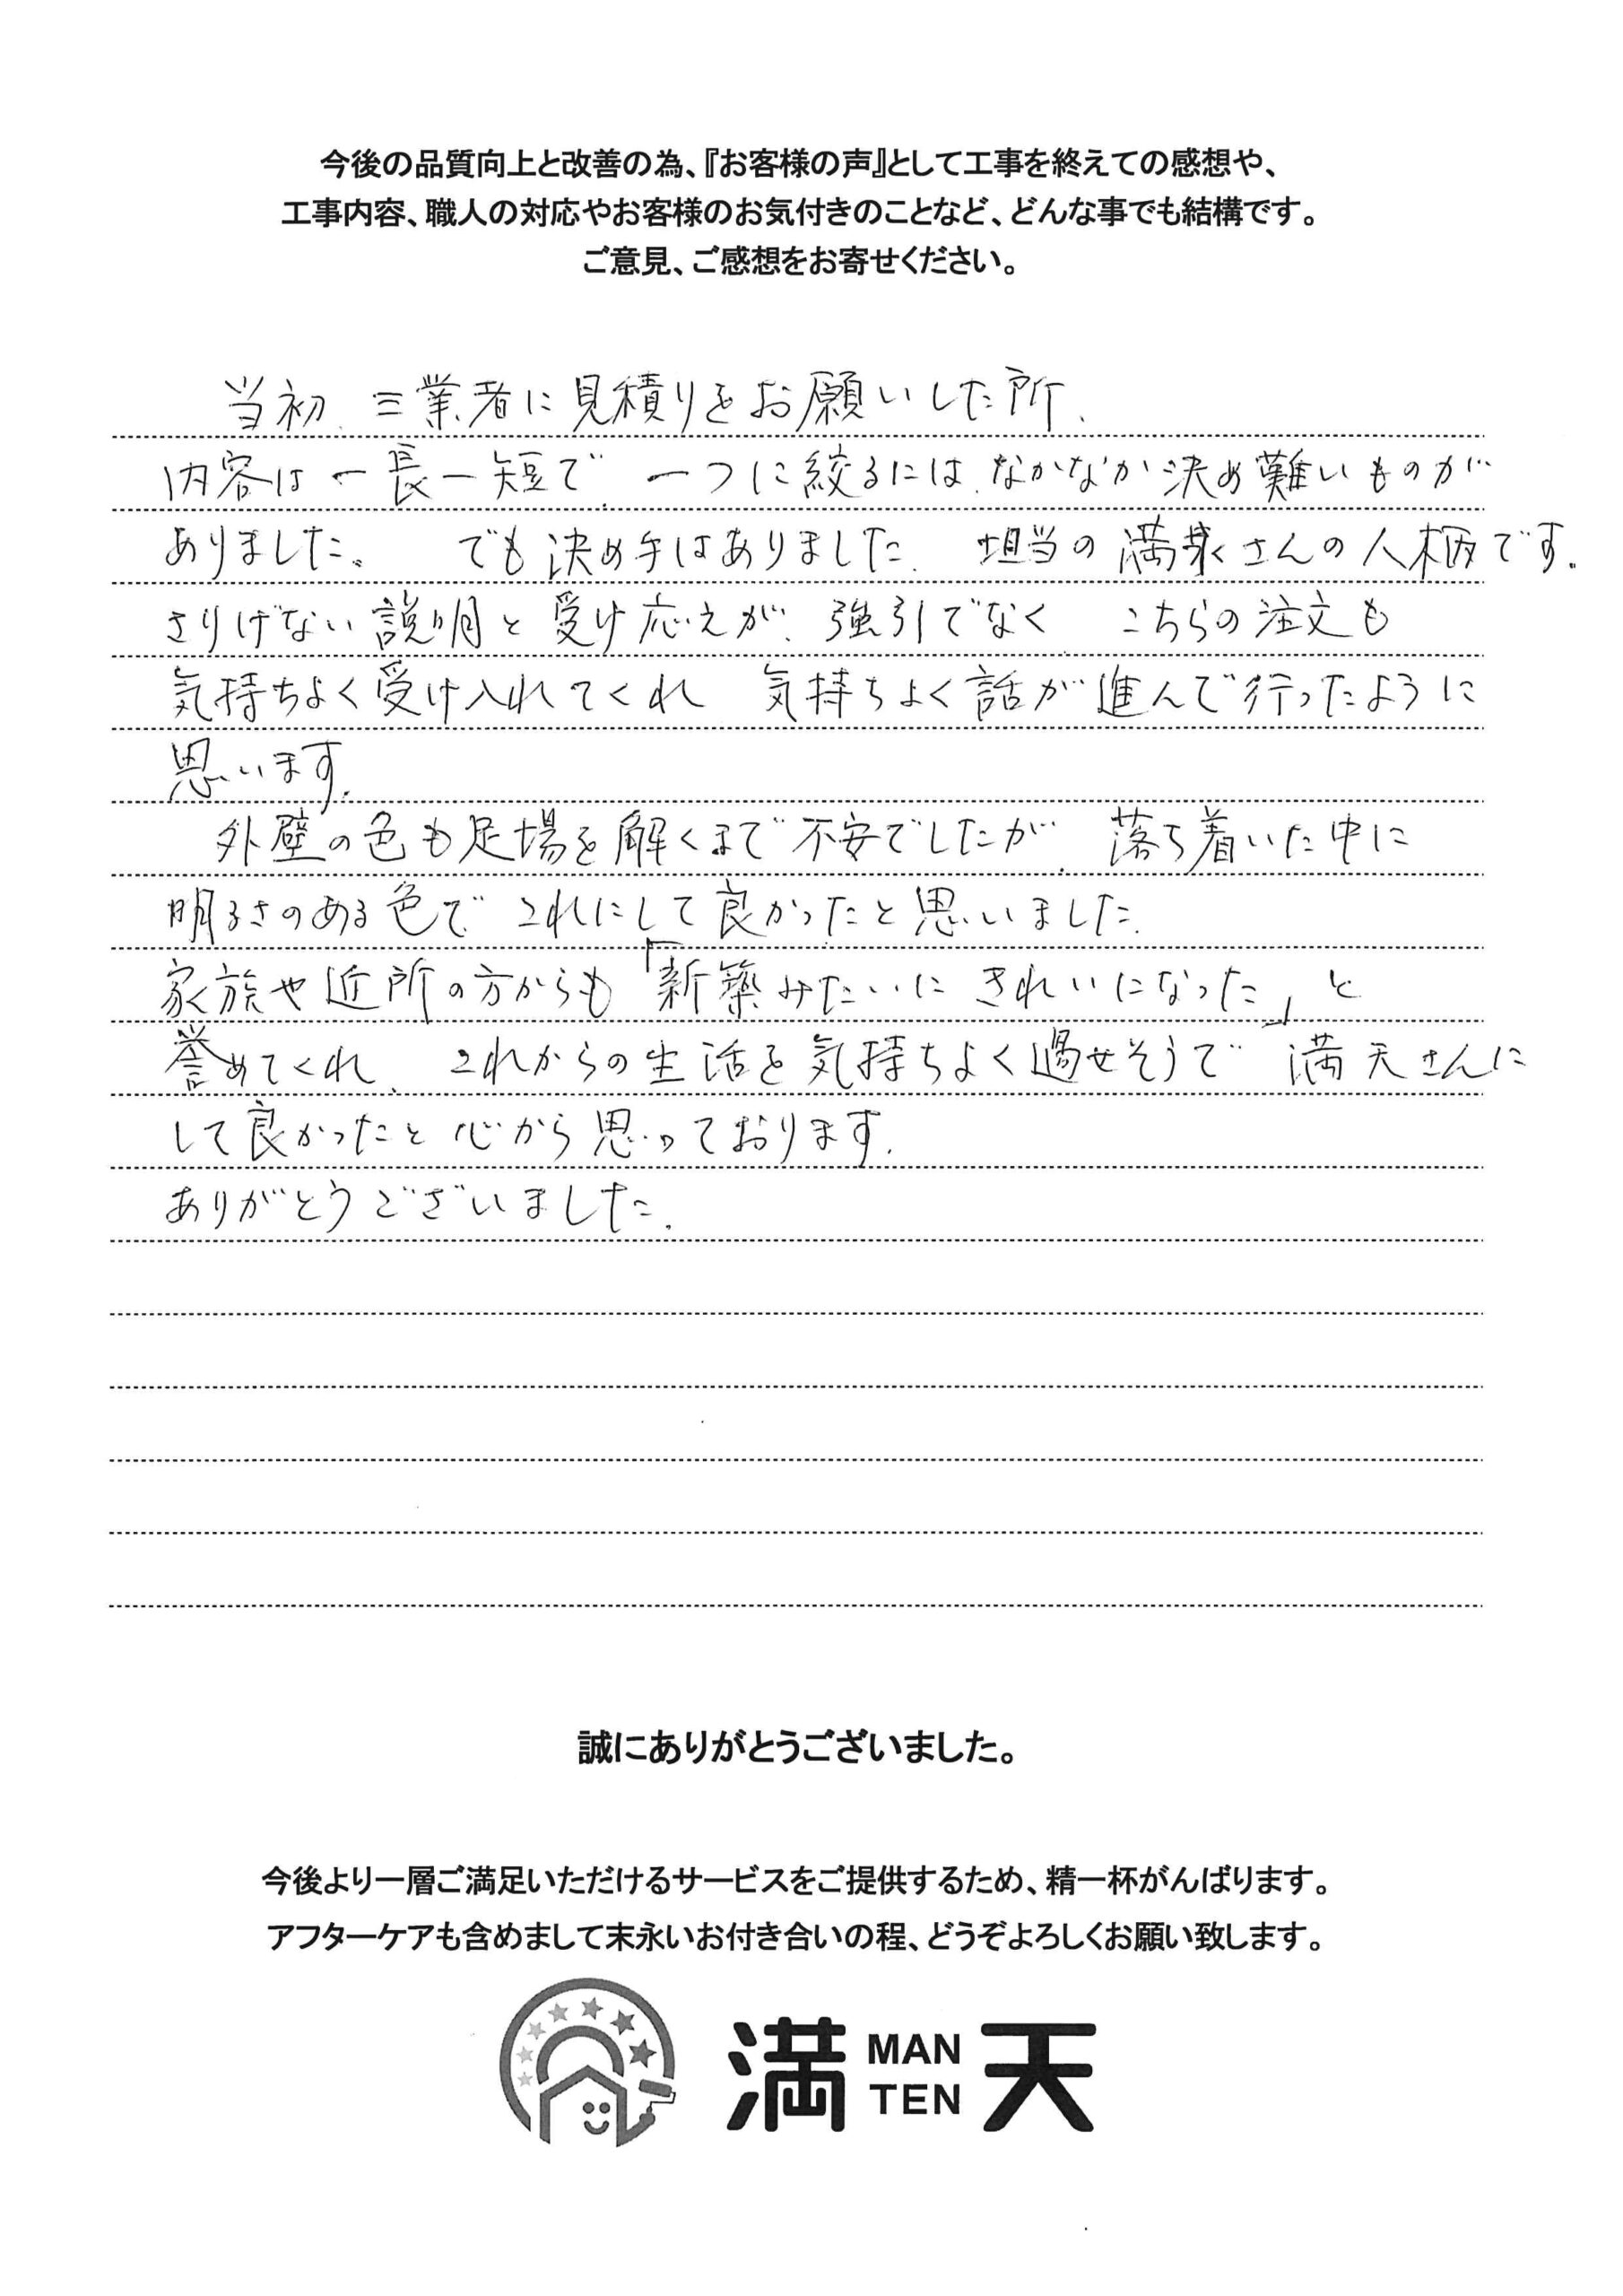 今後の品質向上と改善の為、『お客様の声』として工事を終えての感想や、
工事内容、職人の対応やお客様のお気付きのことなど、どんな事でも結構です。
ご意見、ご感想をお寄せください。
当初、三業者に見積りをお願いした所、
内容は一長一短で、一つに絞るには、なかなか決め難いものが
ありました。 でも決め手はありました。 担当の満さんの人柄です。
さりげない説明と受け応えが、強引でなく、こちらの注文も
気持ちよく受け入れてくれ 気持ちよく話が進んで行ったように
思います。
外壁の色も足場を解くまで不安でしたが、落ち着いた中に
明るさのある色で、これにして良かったと思いました。
家族や近所の方からも「新築みたいに きれいになった」と
誉めてくれ、これからの生活を気持ちよく過せそうで 満天さんに
して良かったと心から思っております。
ありがとうございました。
誠にありがとうございました。
今後より一層ご満足いただけるサービスをご提供するため、精一杯がんばります。
アフターケアも含めまして末永いお付き合いの程、どうぞよろしくお願い致します。
満 MAN TEN 天